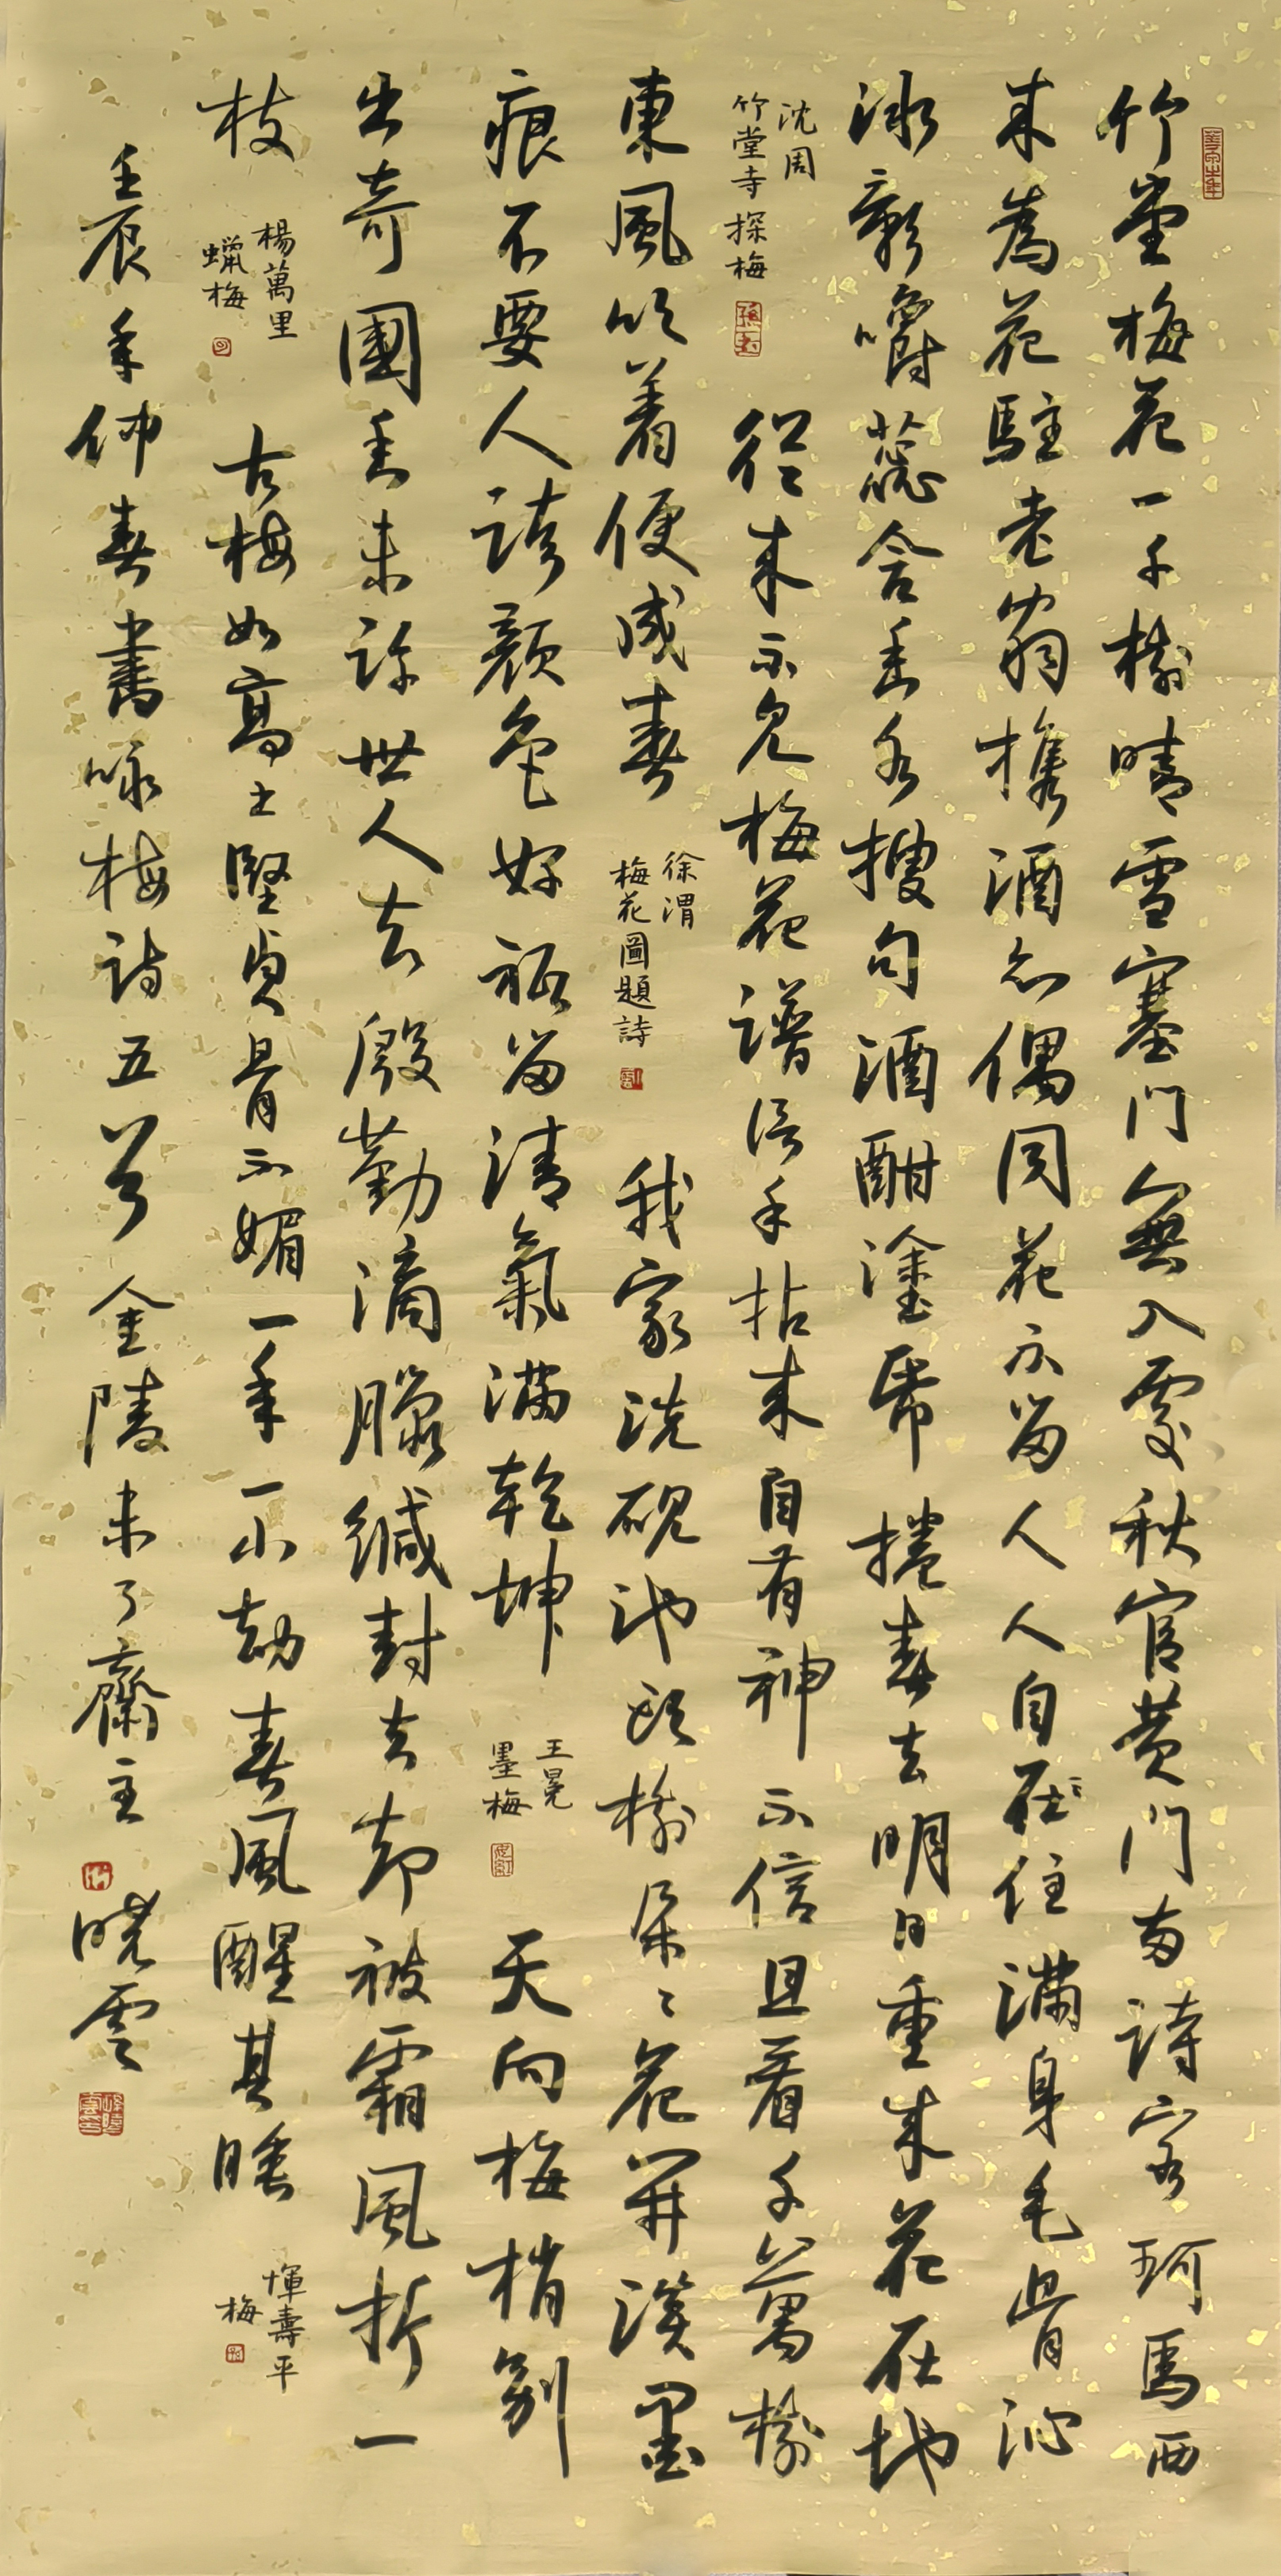 竹堂梅花一千樹晴雪塞門無入處秋官黄門兩詩客珂馬西
来為花駐老翁攜酒亦偶同花不留人人自在住滿身毛骨沁
冰影嚼蕊含香各搜句酒酣塗紙捲春去明日重来花在地
沈周
竹堂寺探梅
從来不見梅花譜信手拈来自有神不信且看千萬樹
東風吹着便成春
徐渭
梅花圖題詩
我家洗硯池頭樹朵〻花開淡墨
痕不要人誇顏色好祗留清氣滿乾坤
王冕
墨梅
天向梅梢別
出奇國香未許世人知殷勤滴臘緘封去却被霜風折一
枝
楊萬里
蠟梅
古梅如高士堅貞骨不媚一年一小劫春風醒其睡
惲壽平
梅
壬辰年仲春書咏梅詩五首金陵未了齋主
曉雲